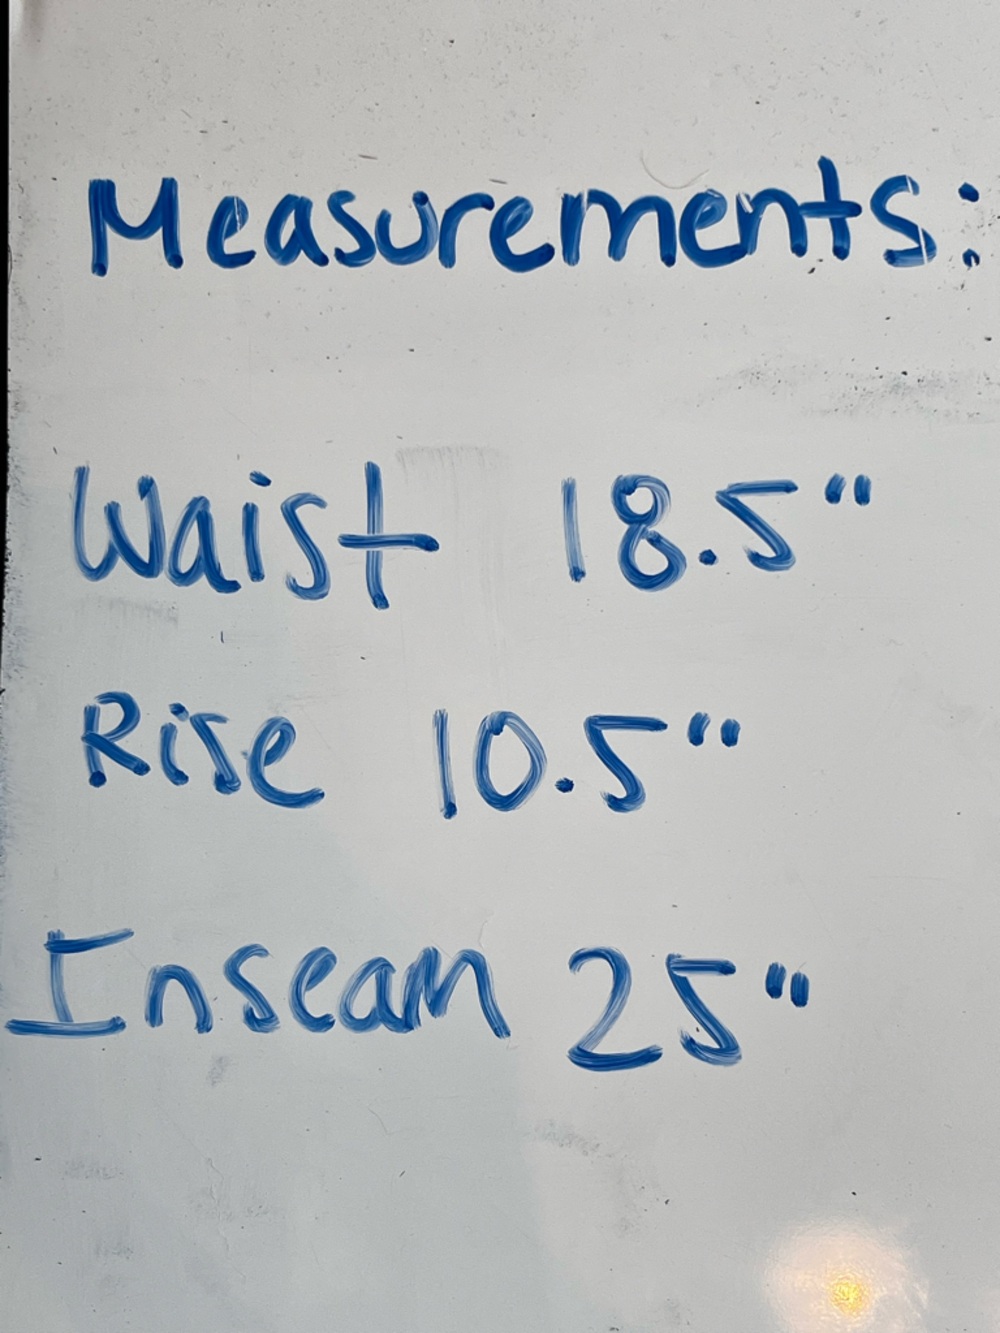 Measurements:
Waist 18.5"
Rise 10.5"
Inseam 25"